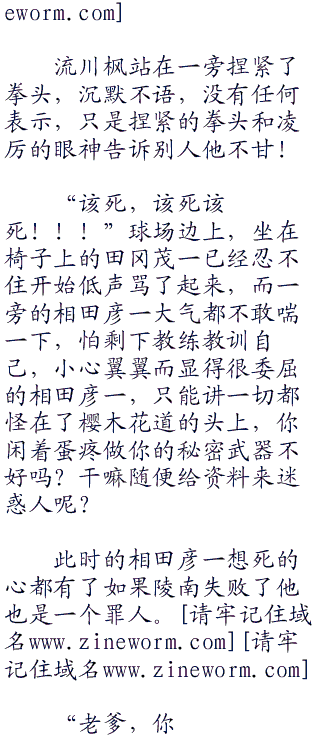 eworm.com]
流川枫站在一旁捏紧了
拳头，沉默不语，没有任何
表示，只是捏紧的拳头和凌
厉的眼神告诉别人他不甘！
“该死，该死该
死！！！”球场边上，坐在
椅子上的田冈茂一已经忍不
住开始低声骂了起来，而一
旁的相田彦一大气都不敢喘
一下，怕剩下教练教训自
己，小心翼翼而显得很委屈
的相田彦一，只能讲一切都
怪在了樱木花道的头上，你
闲着蛋疼做你的秘密武器不
好吗？干嘛随便给资料来迷
惑人呢？
此时的相田彦一想死的
心都有了如果陵南失败了他
也是一个罪人。[请牢记住域
名www.zineworm.com][请牢
记住域名www.zineworm.com]
“老爹，你